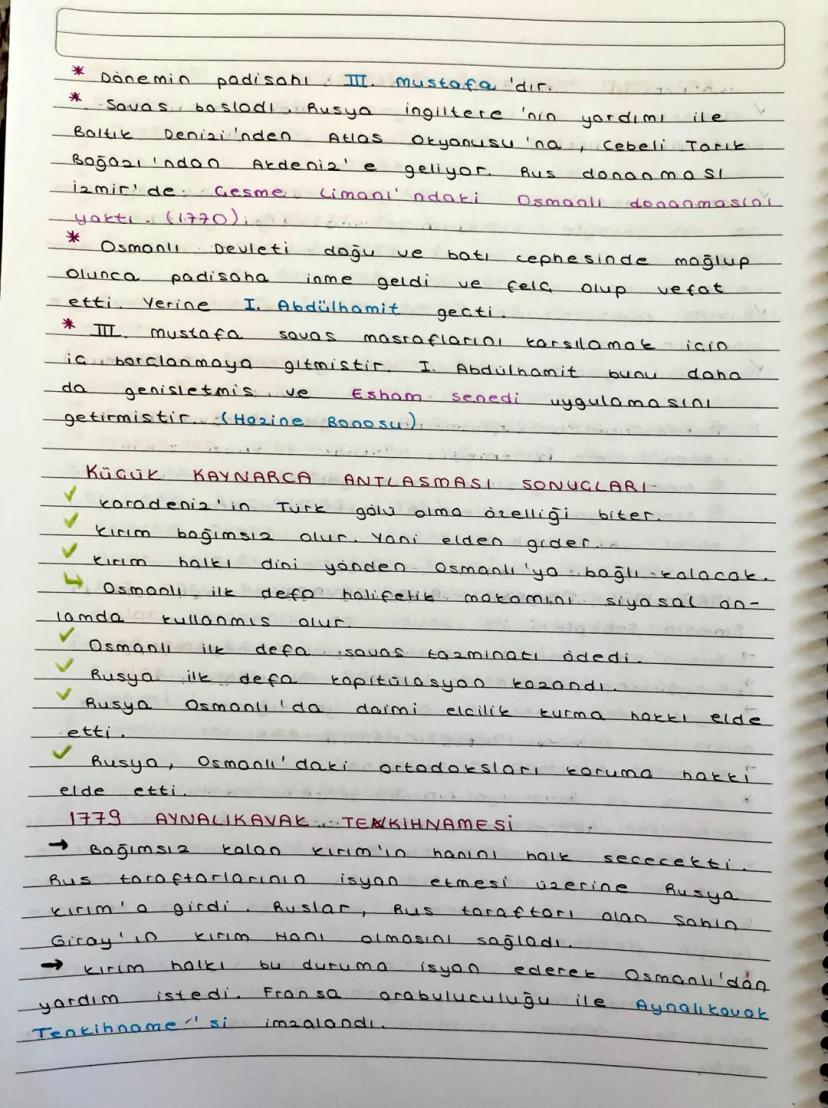 * Dönemin padişahı III. Mustafa'dır.
* Savaş başladı. Rusya İngiltere'nin yardımı ile
Baltık Denizi'nden Atlas Okyanusu'na, Cebeli Tarık
Boğazı'ndan Akdeniz'e geliyor. Rus donanması
İzmir'de Çeşme Limanı'ndaki Osmanlı donanmasını
yaktı. (1770).
* Osmanlı Devleti doğu ve batı cephesinde mağlup
olunca padişaha inme geldi ve felç olup vefat
etti. Yerine I. Abdülhamit geçti.
* III. Mustafa savaş masraflarını karşılamak için
iç borçlanmaya gitmiştir. I. Abdülhamit bunu daha
da genişletmiş ve Esham senedi uygulamasını
getirmiştir. (Hazine Bonosu)
KÜÇÜK KAYNARCA ANTLAŞMASI SONUÇLARI
✓ Karadeniz'in Türk gölü olma özelliği biter.
✓ Kırım bağımsız olur. Yani elden gider.
✓ Kırım halkı dini yönden Osmanlı'ya bağlı kalacak.
↳ Osmanlı ilk defa halifelik makamını siyasal an-
lamda kullanmış olur.
✓ Osmanlı ilk defa savaş tazminatı ödedi.
✓ Rusya ilk defa kapitülasyon kazandı.
✓ Rusya Osmanlı'da daimi elçilik kurma hakkı elde
etti.
✓ Rusya, Osmanlı'daki ortodoksları koruma hakkı
elde etti.
1779 AYNALIKAVAK TENKİHNAMESİ
→ Bağımsız kalan Kırım'ın hanını halk seçecekti.
Rus taraftarlarının isyan etmesi üzerine Rusya
Kırım'a girdi. Ruslar, Rus taraftarı olan Şahin
Giray'ın Kırım Hanı olmasını sağladı.
→ Kırım halkı bu duruma isyan ederek Osmanlı'dan
yardım istedi. Fransa arabuluculuğu ile Aynalıkavak
Tenkihname'si imzalandı.